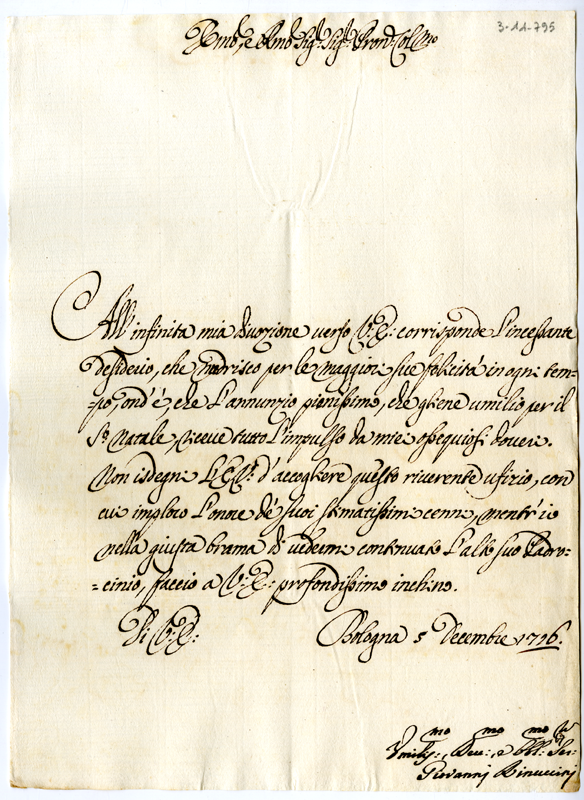 3-11-795
Emo, e Rmo Sigr. Sigr. Pron Colmo
All'infinita mia divozione verso V. E: corrisponde l'incessante
desiderio, che nudrisco per le maggiori sue felicità in ogni tem-
-po, ond'è, che l'annunzio pienissimo, che gliene umilio per il
Sto. Natale, riceve tutto l'impulso da miei ossequiosi doveri.
Non isdegni l'E. V. d'accogliere questo riverente ufizio, con
cui imploro l'onore de suoi stimatissimi cenni, mentr'io
nella giusta brama di vedermi continuato l'alto suo Padro-
-cinio, faccio a V: E: profondissimo inchino.
Di V: E:
Bologna 5 Decembre 1726.
Umilmo:, Devmo:, e Obblmo: Ser:
Giovanni Rinuccini